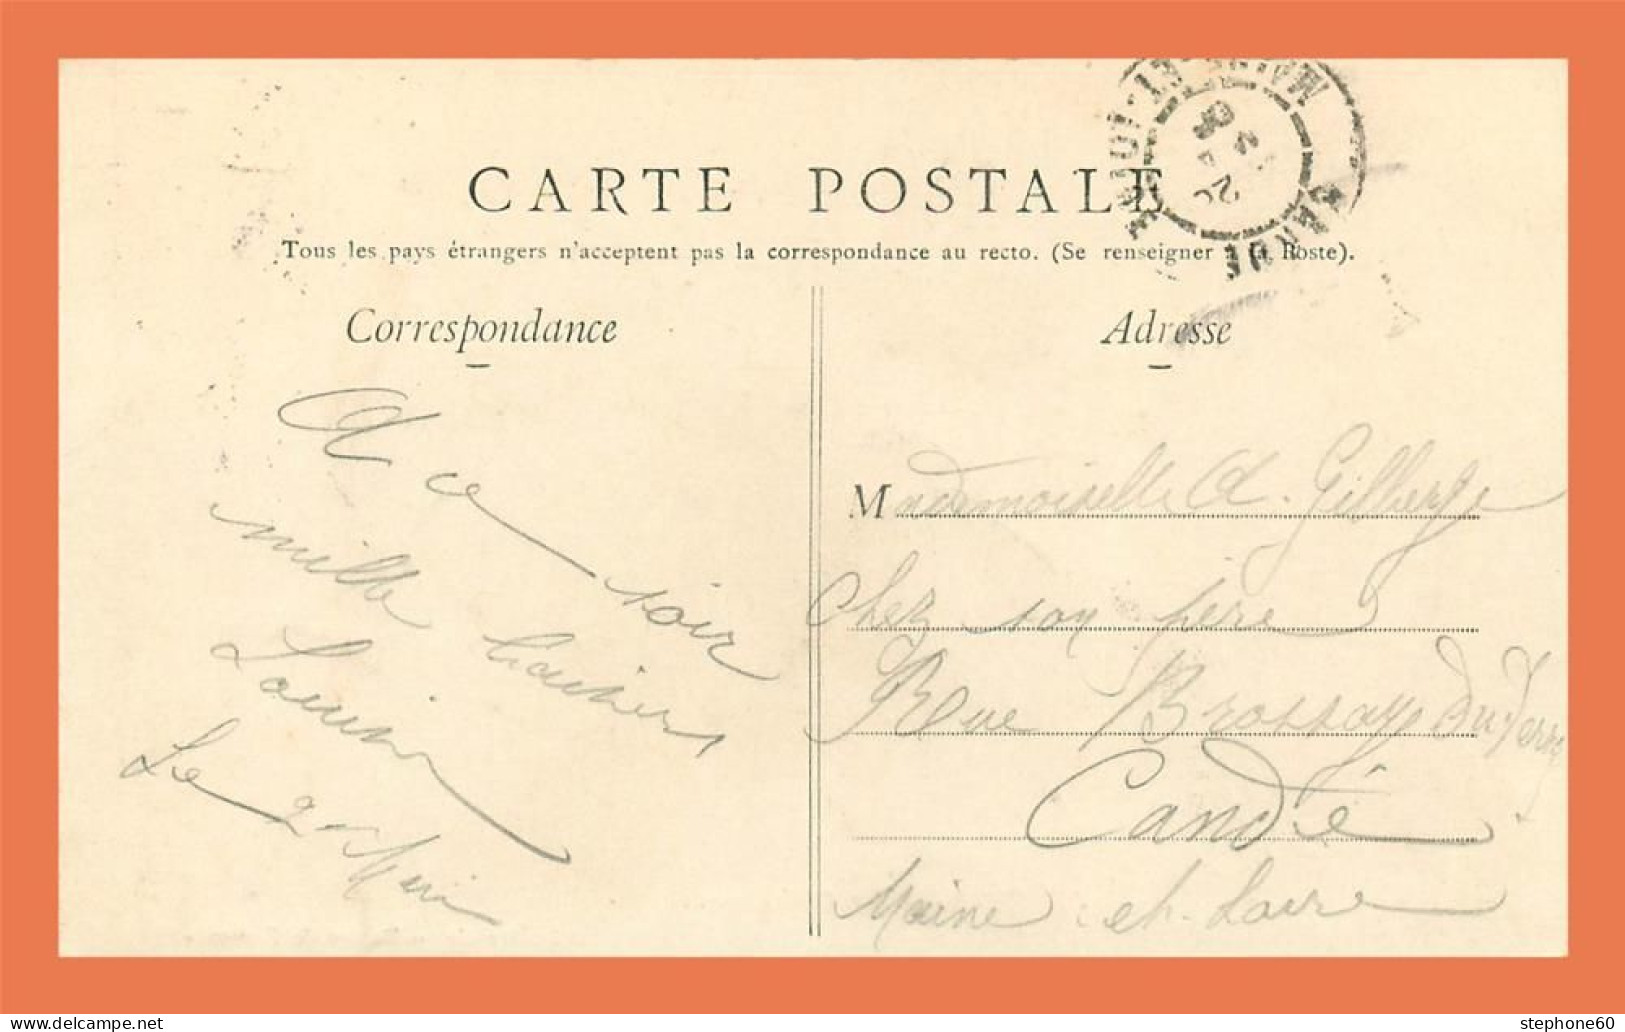 CARTE POSTALE
Tous les pays étrangers n'acceptent pas la correspondance au recto. (Se renseigner à la Poste).
Correspondance
Adresse
A ce soir
mille baisers
Louise
Le
Mademoiselle A. Gilberge
Chez son père
Rue Brossay du Terre
Candé
Maine et Loire
stephone60